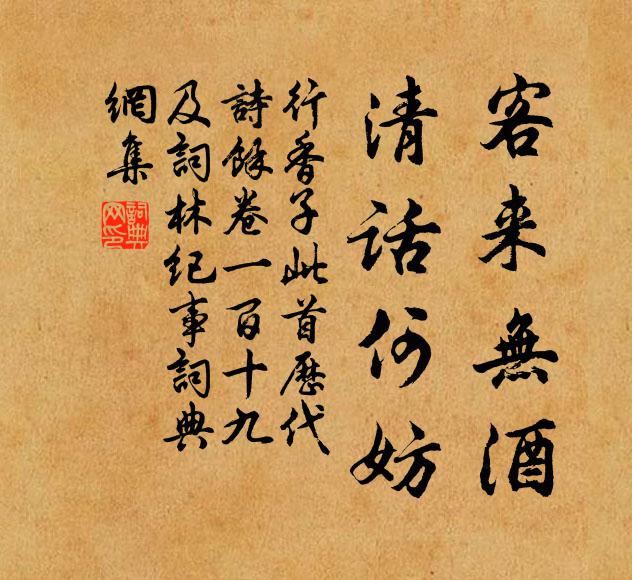 客来無酒
清話何妨
行香子此首歷代
詩餘卷一百十九
及詞林纪事詞典
網集
詞典
网印